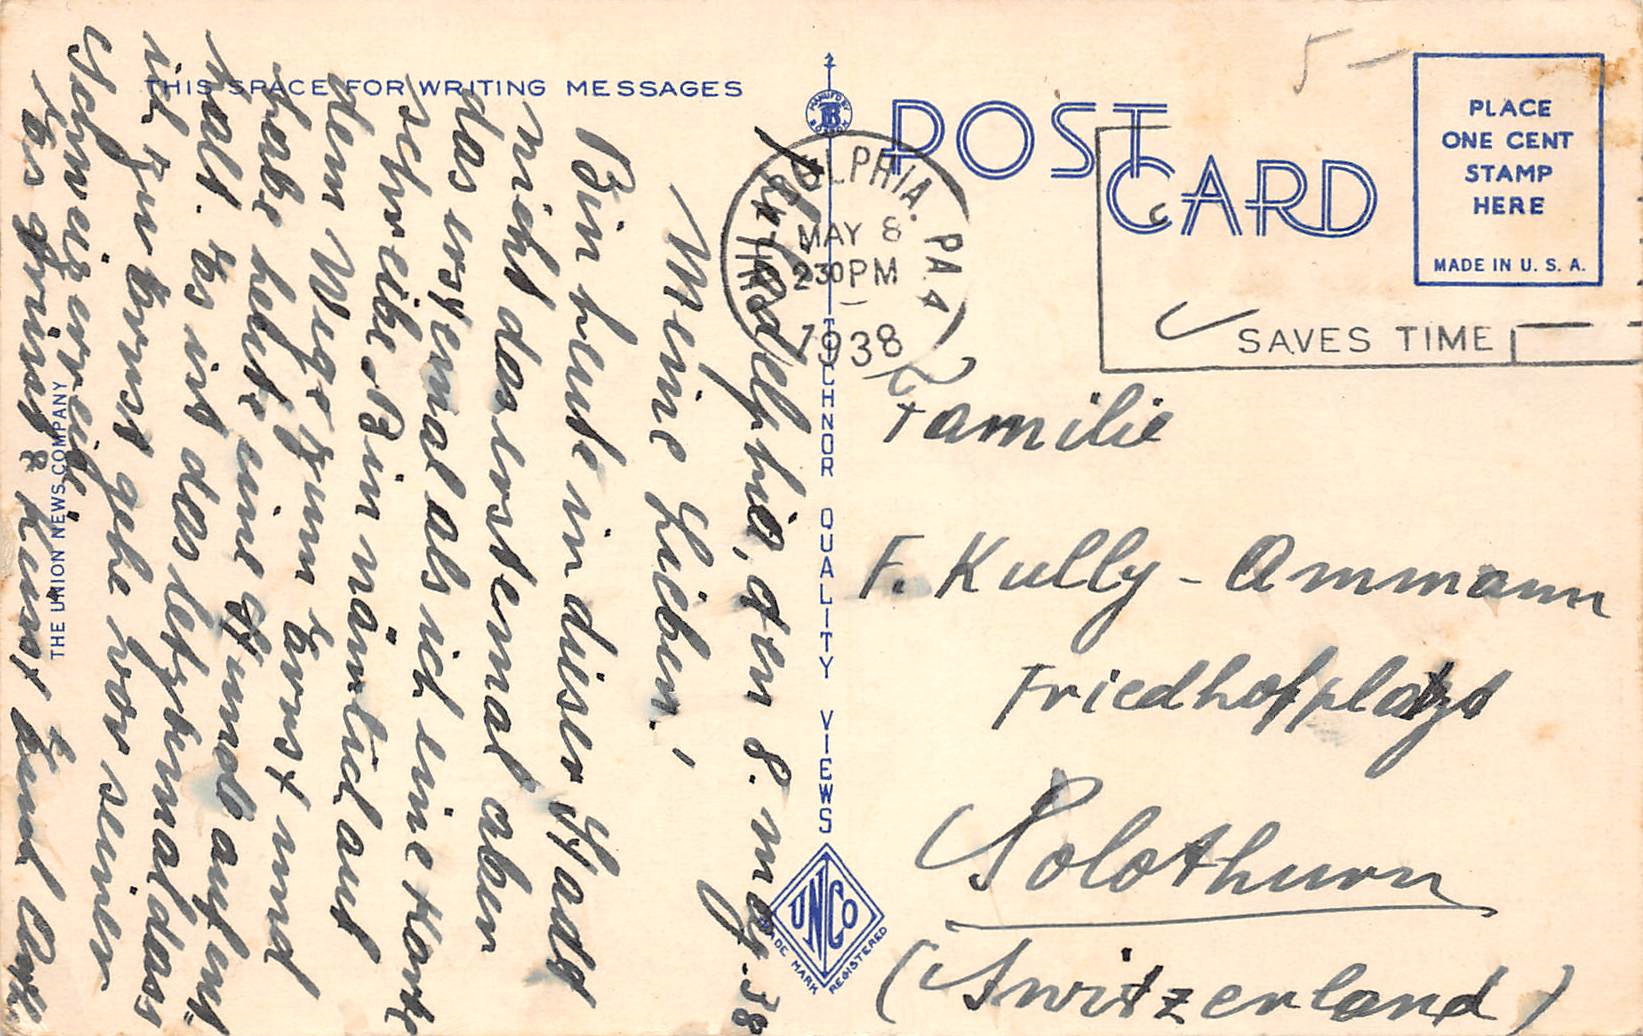 THIS SPACE FOR WRITING MESSAGES
POST CARD
5 –
PLACE
ONE CENT
STAMP
HERE
MADE IN U. S. A.
MAY 8
230PM
1938
PA
SAVES TIME
MANUF'D BY
BOSTON
TECHNOR QUALITY VIEWS
UNCO
TRADE MARK REGISTERED
THE UNION NEWS COMPANY
den 8. may. 38
Meine Lieben!
Bin heute in dieser Stadt
nicht das erstemal aber
das erstemal als ich eine Karte
schreibe. Bin nämlich auf
dem Wege zum Ernst und
habe heute eine Stund aufent-
halt. Es ist das letztemal dass
ich zu Ernst gehe vor seiner
Schweizerreise.
Es grüsst &
Familie
F. Kully - Ammann
Friedhofplatz
Solothurn
(Switzerland)